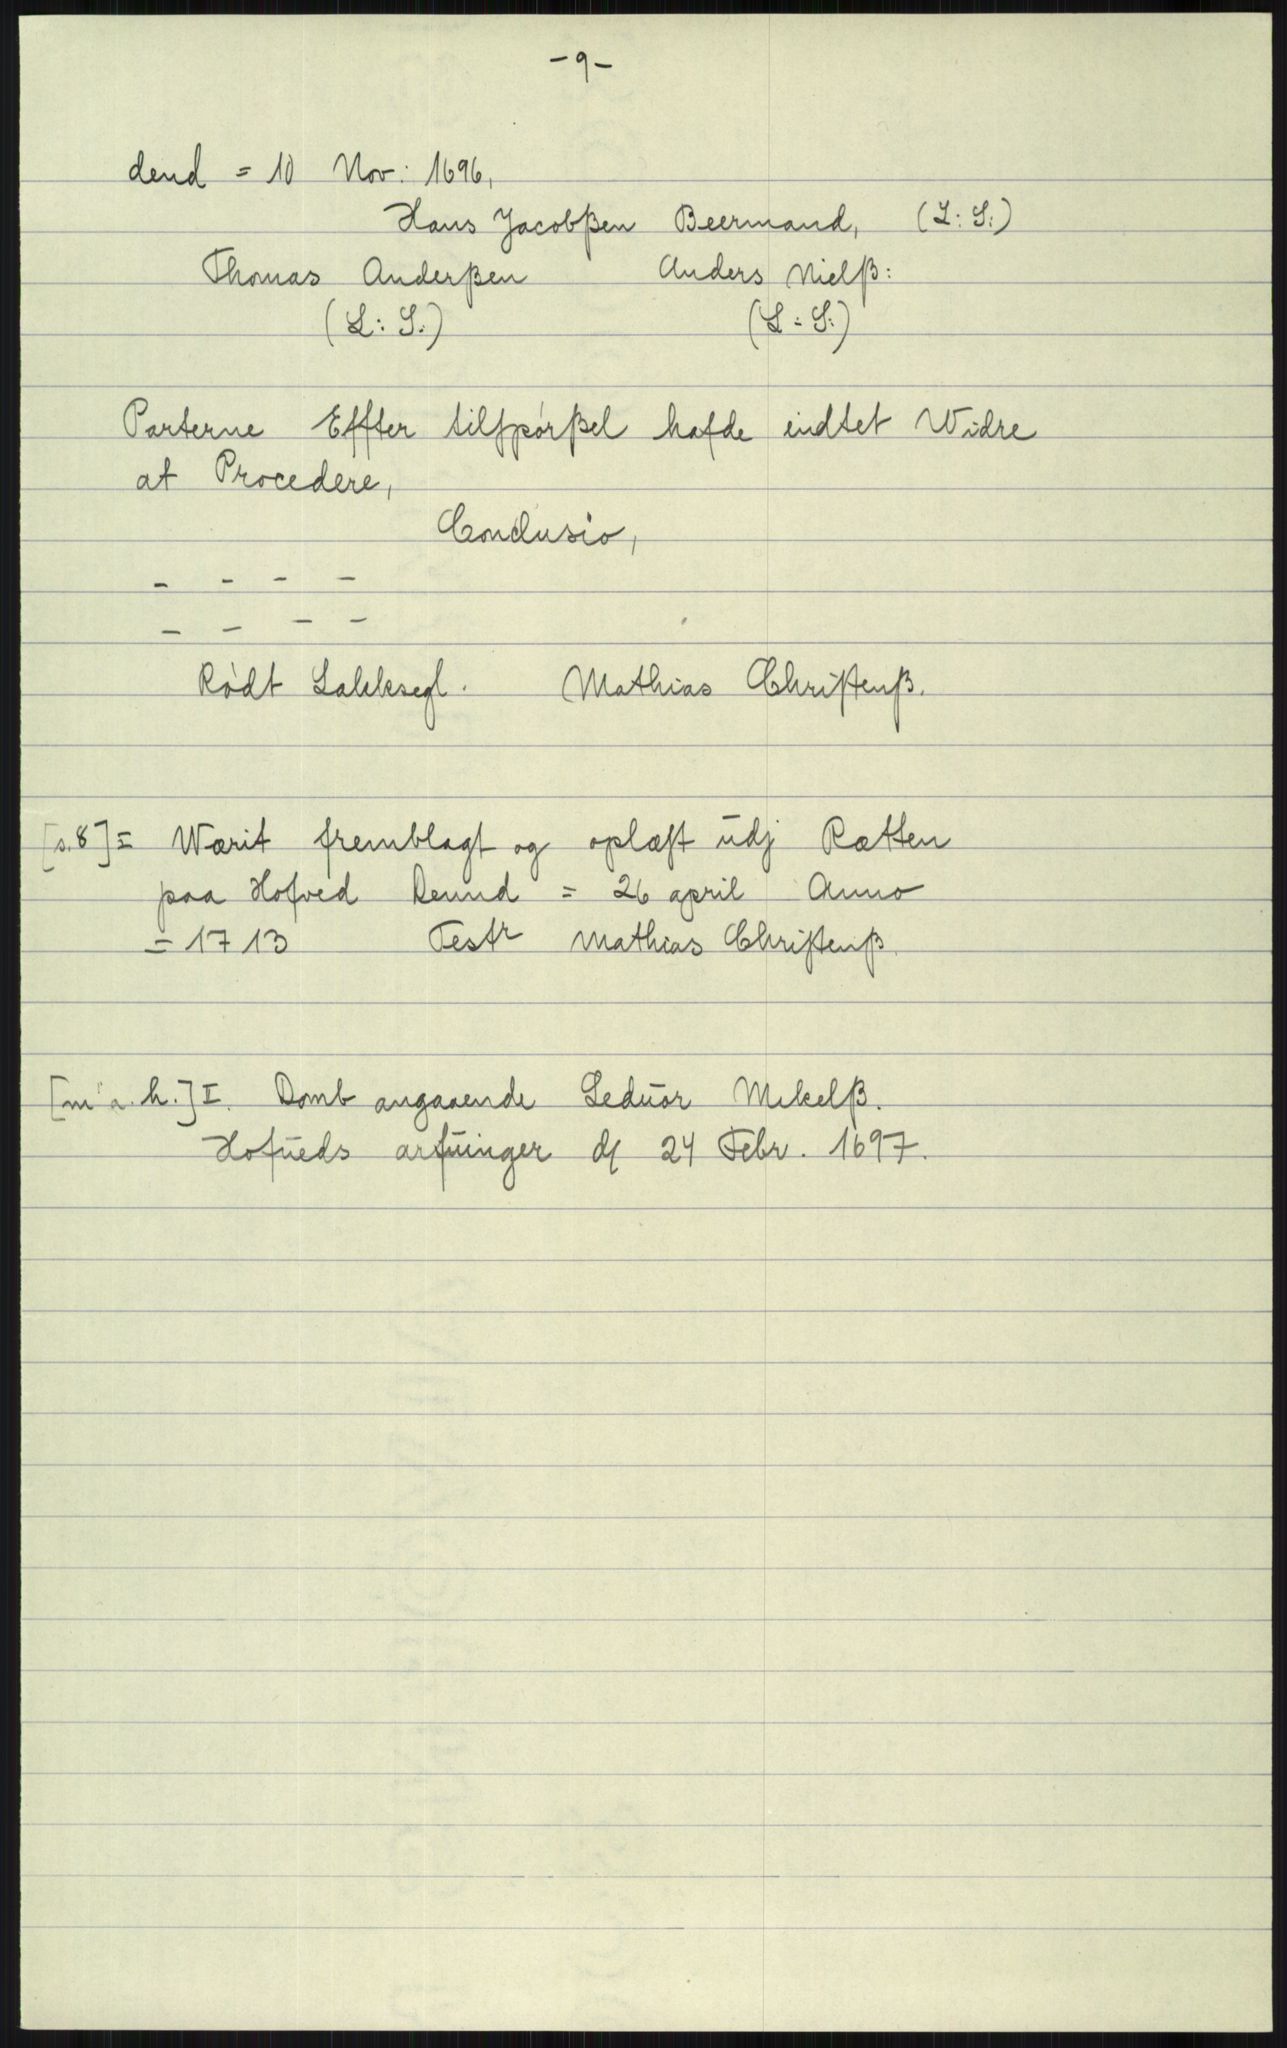 - 9 -
dend = 10 Nov: 1696,
Hans Jacobßen Beermand, (L: S:)
Thomas Anderßen Anders Nielß:
(L: S:) (L: S:)
Parterne Effter tilspørßel hafde indtet Widre
at Procedere,
Conclusio,
- - - -
- - - -
Rødt Lakksegl. Mathias Christenß.
[s. 8] = Wærit fremblagt og oplæst udj Rætten
paa Hofved Dennd = 26 april Anno
= 1713 Testr Mathias Christenß.
[m a. h.] I. Domb angaaende Seduor Mikelß.
Hofueds arfuinger dj 24 Febr. 1697.